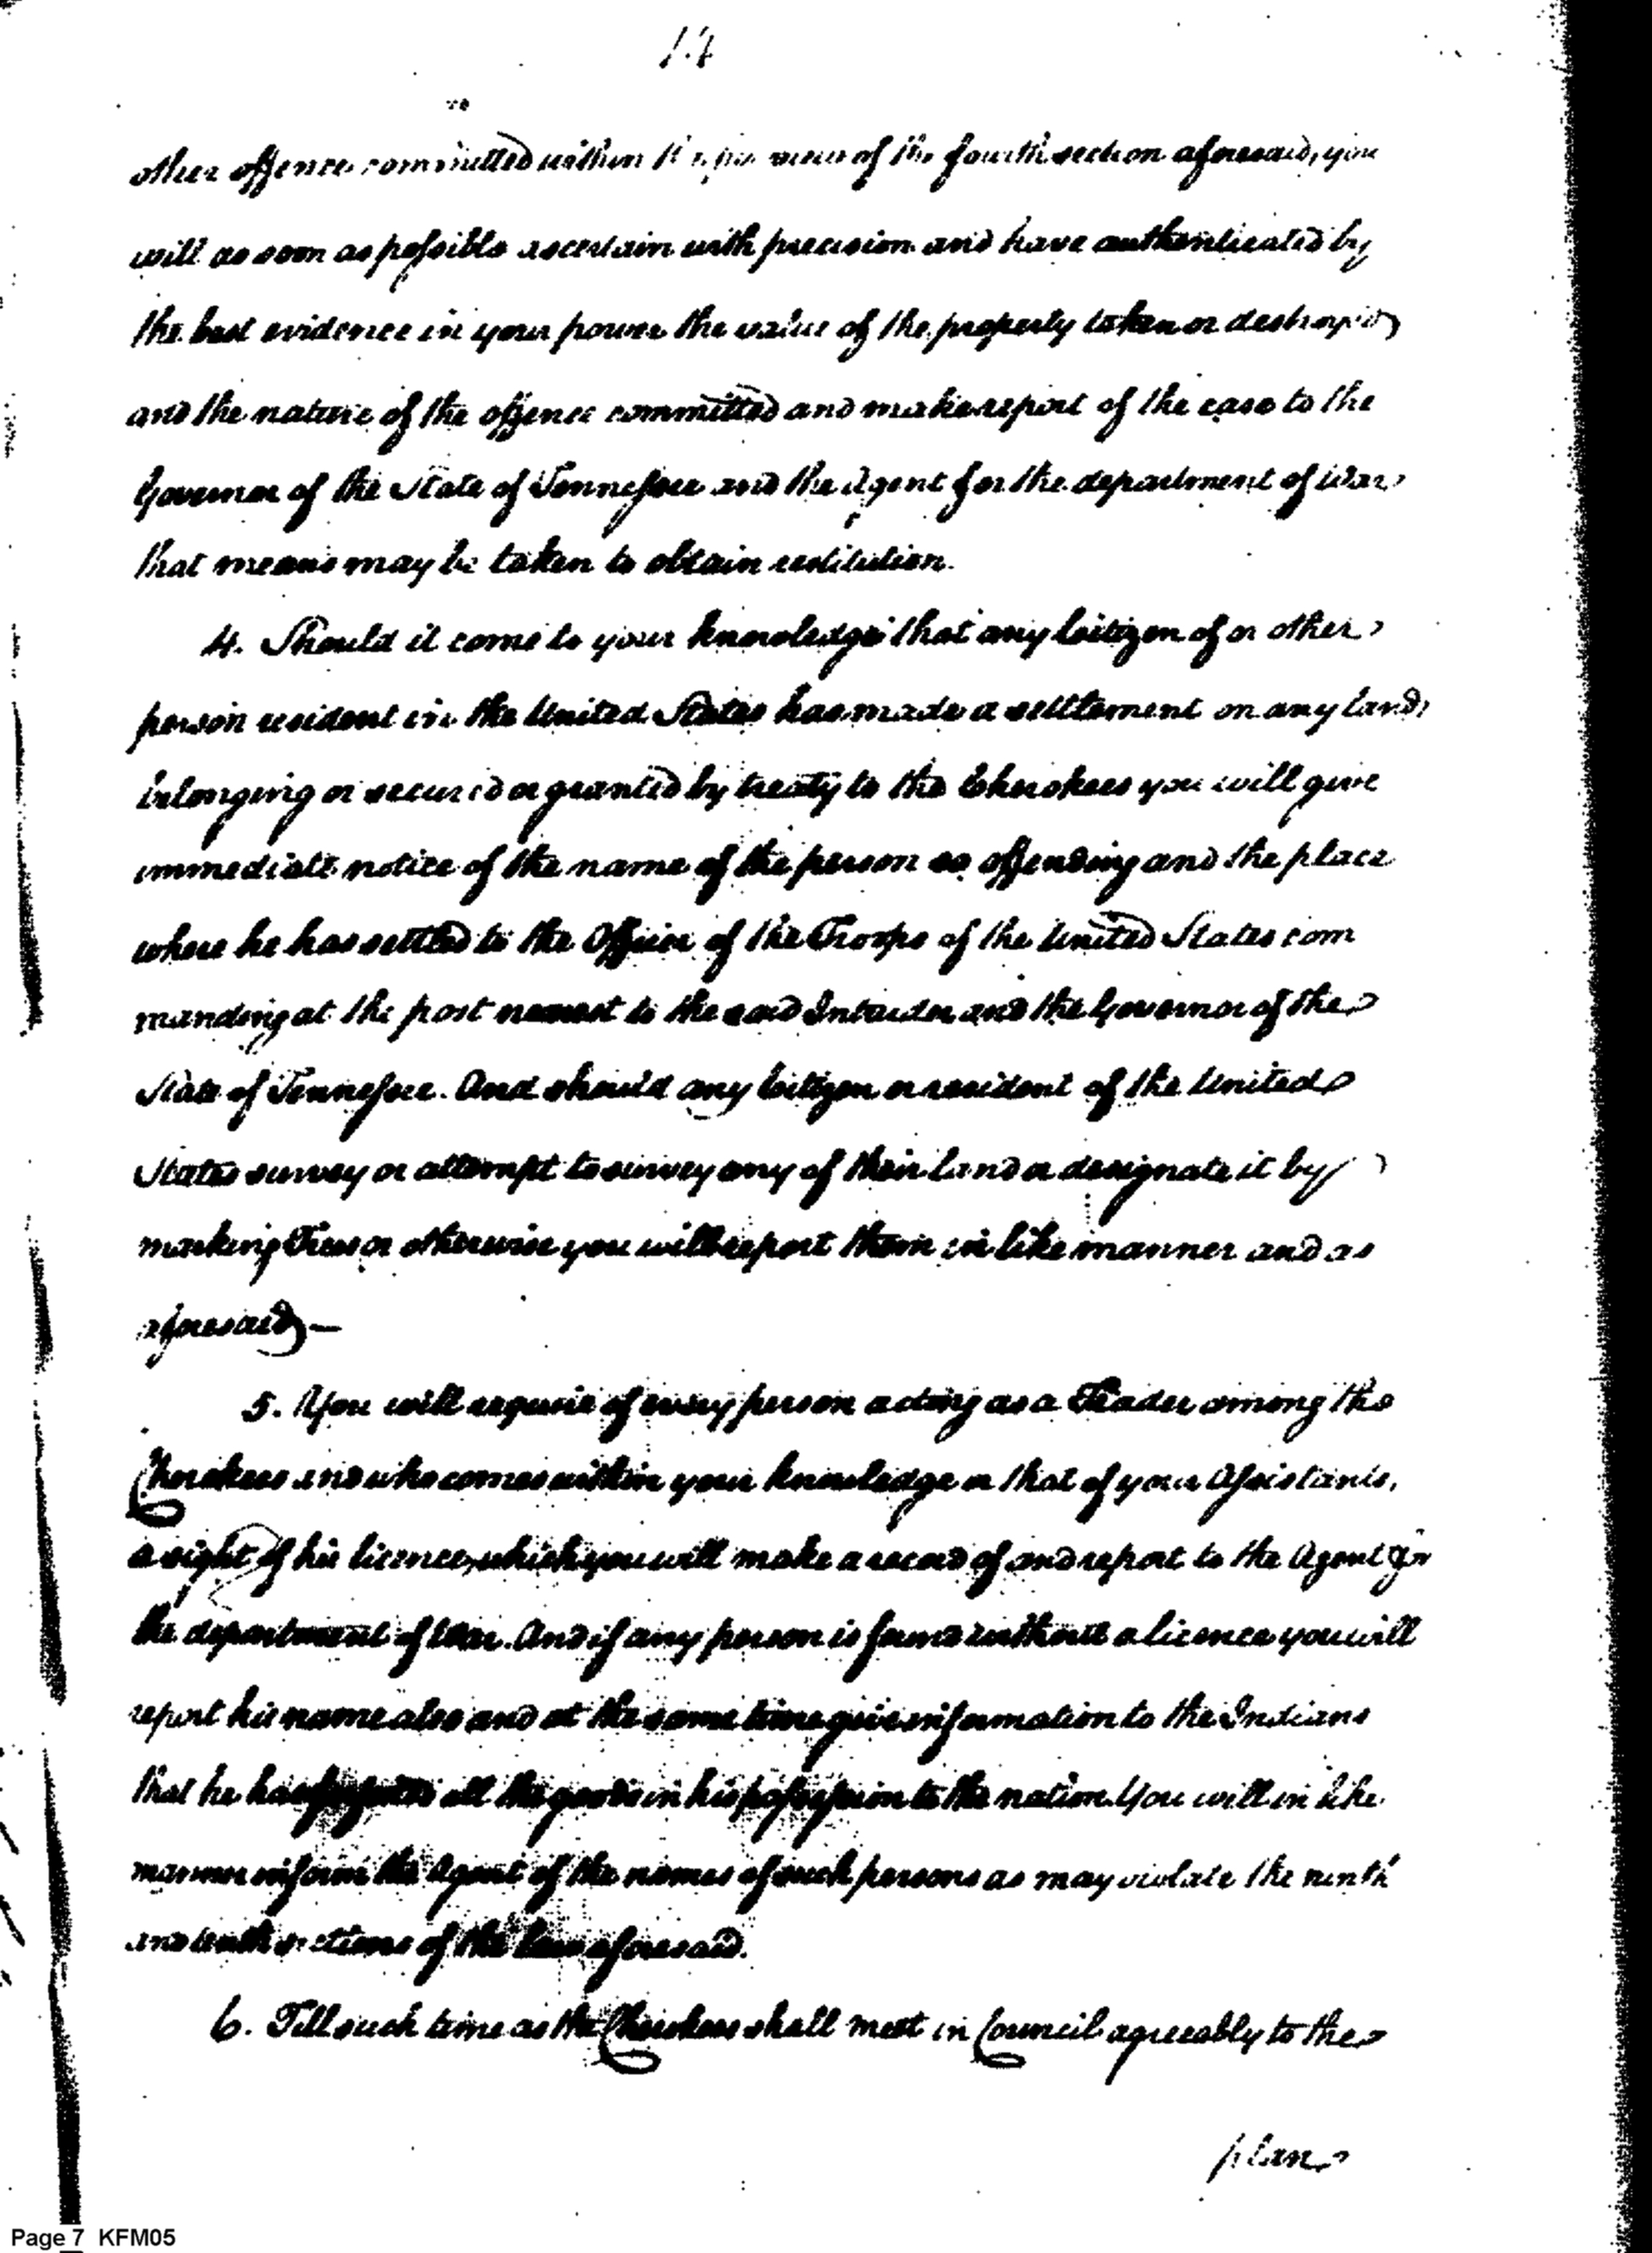 14
other offence committed within the pur view of the fourth section aforesaid, you
will as soon as possible ascertain with precision and have authenticated by
the best evidence in your power the value of the property taken or destroyed
and the nature of the offence committed and make report of the case to the
Governor of the State of Tennessee and the Agent for the department of War
that means may be taken to obtain restitution.
4. Should it come to your knowledge that any Citizen of or other
person resident in the United States has made a settlement on any land
belonging or secured or granted by treaty to the Cherokees you will give
immediate notice of the name of the person so offending and the place
where he has settled to the Officer of the Troops of the United States com
manding at the post nearest to the said Intruder and the Governor of the
State of Tennessee. And should any Citizen or resident of the United
States survey or attempt to survey any of their land or designate it by
marking Trees or otherwise you will report them in like manner and as
aforesaid —
5. You will require of every person acting as a Trader among the
Cherokees and who comes within your knowledge or that of your Assistants,
a sight of his licence, which you will make a record of and report to the Agent for
the department of War. And if any person is found without a licence you will
report his name also and at the same time give information to the Indians
that he has forfeited all the goods in his possession to the nation. You will in like
manner inform the Agent of the names of such persons as may violate the ninth
and tenth sections of the law aforesaid.
6. Till such time as the Cherokees shall meet in Council agreeably to the
plan
Page 7 KFM05